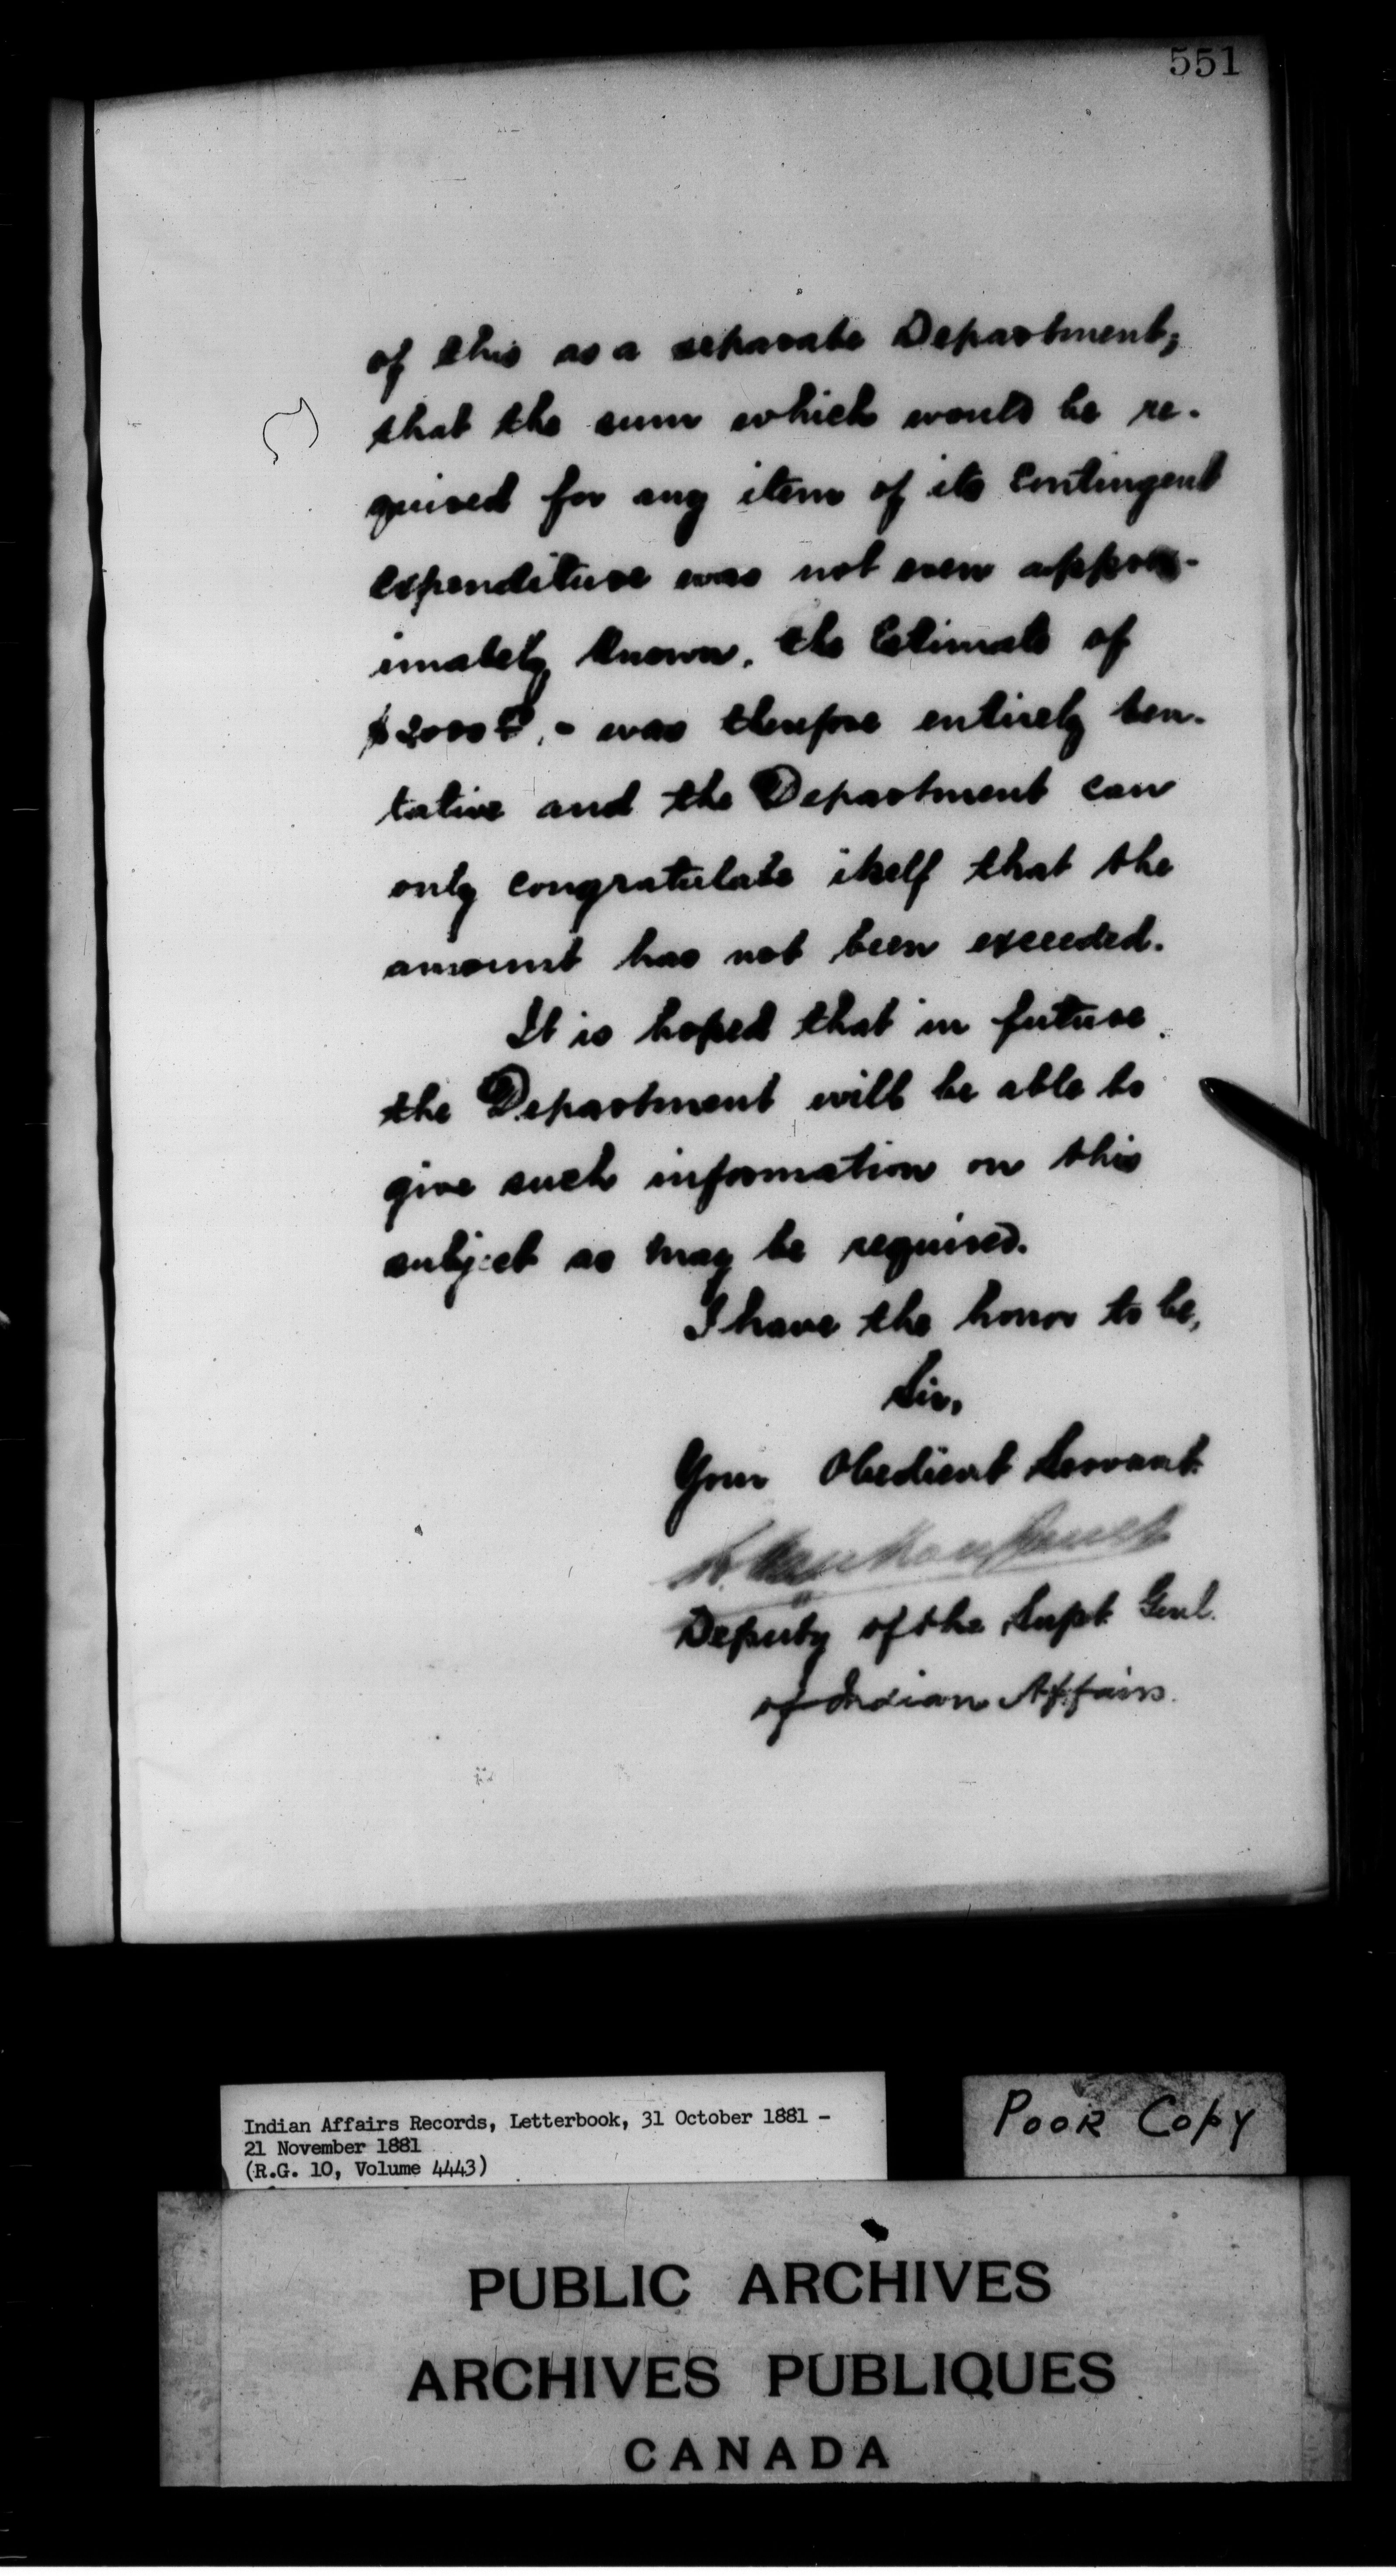 551
of this as a separate Department,
that the sum which would be re-
quired for any item of its Contingent
Expenditure was not even approx-
imately known, the Estimate of
$2000 - was therefore entirely ten-
tative and the Department can
only congratulate itself that the
amount has not been exceeded.
It is hoped that in future
the Department will be able to
give such information on this
subject as may be required.
I have the honor to be,
Sir,
Your Obedient Servant
L. Vankoughnet
Deputy of the Supt. Genl.
of Indian Affairs.
Indian Affairs Records, Letterbook, 31 October 1881 -
21 November 1881
(R.G. 10, Volume 4443)
Poor Copy
PUBLIC ARCHIVES
ARCHIVES PUBLIQUES
CANADA